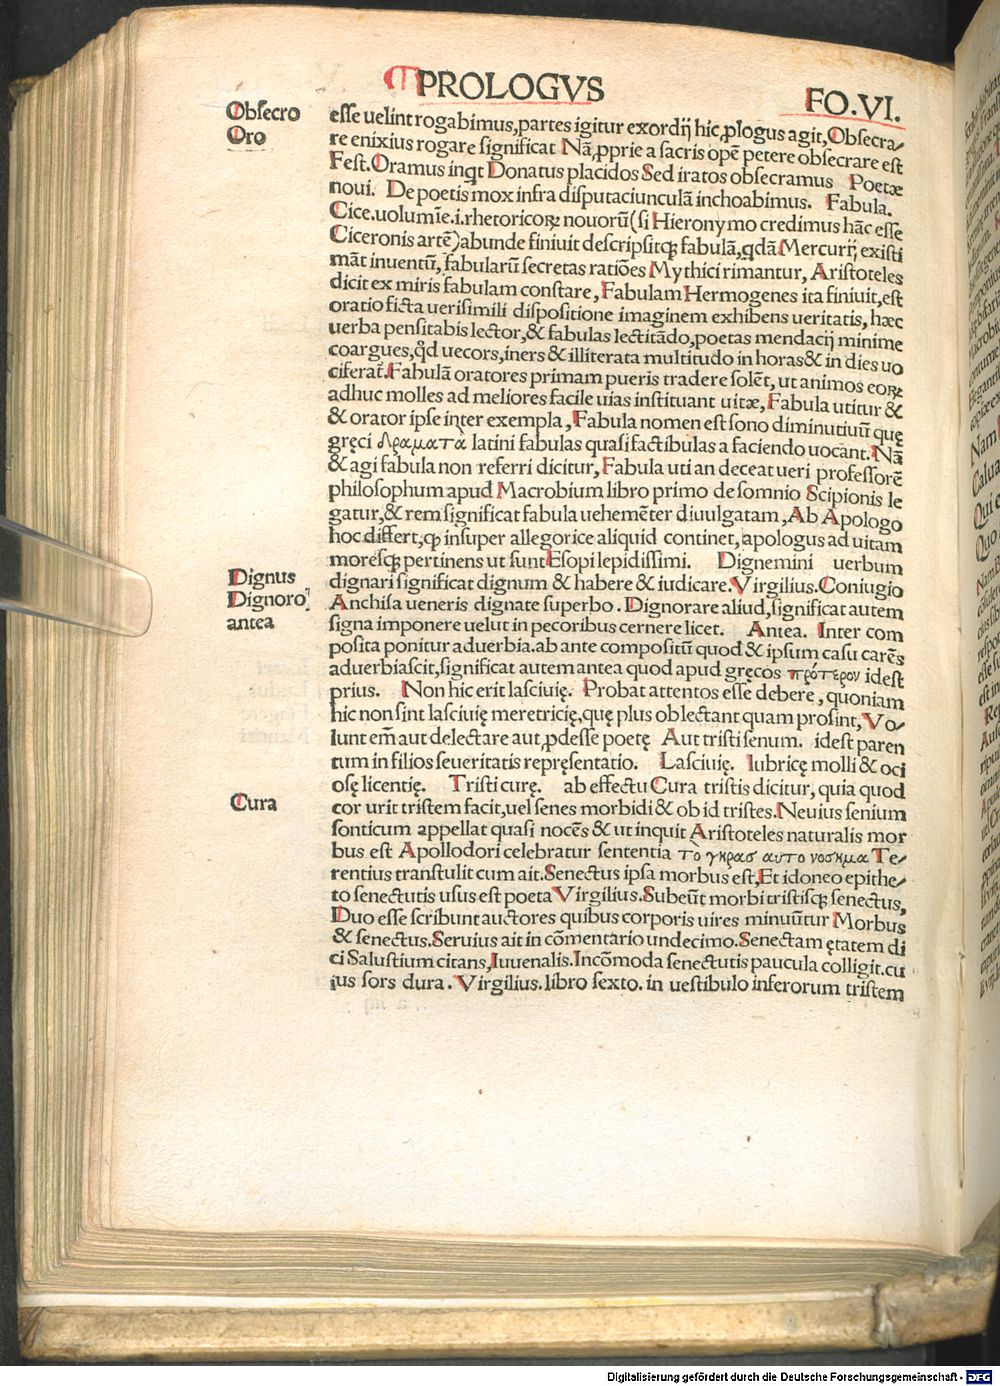 PROLOGVS
FO.VI.
Obſecro
Oro
eſſe uelint rogabimus, partes igitur exordij hic ꝓlogus agit, Obſecra/
re enixius rogare ſignificat Nã, ꝓprie a ſacris opẽ petere obſecrare eſt
Feſt. Oramus inqt Donatus placidos Sed iratos obſecramus Poetæ
noui. De poetis mox infra diſputaciunculã inchoabimus. Fabula.
Cice. uolumĩe .i. rhetoricoꝝ nouorũ (ſi Hieronymo credimus hãc eſſe
Ciceronis artẽ) abunde finiuit deſcripſitqȝ fabulã, qdã Mercurij exiſti
mãt inuentũ, fabularũ ſecretas ratiões Mythici rimantur, Ariſtoteles
dicit ex miris fabulam conſtare, Fabulam Hermogenes ita finiuit, eſt
oratio ficta ueriſimili diſpoſitione imaginem exhibens ueritatis, hæc
uerba penſitabis lector, & fabulas lectitãdo, poetas mendacij minime
coargues, qd uecors, iners & illiterata multitudo in horas & in dies uo
ciferat̃. Fabulã oratores primam pueris tradere ſolẽt, ut animos eoꝝ
adhuc molles ad meliores facile uias inſtituant uitæ, Fabula utitur &
& orator ipſe inter exempla, Fabula nomen eſt ſono diminutiuũ quę
gręci δραματα latini fabulas quaſi factibulas a faciendo uocant. Nã
& agi fabula non referri dicitur, Fabula uti an deceat ueri profeſſorẽ
philoſophum apud Macrobium libro primo de ſomnio Scipionis le
gatur, & rem ſignificat fabula uehemẽter diuulgatam, Ab Apologo
hoc differt, qꝫ inſuper allegorice aliquid continet, apologus ad uitam
moreſqȝ pertinens ut ſunt Eſopi lepidiſſimi. Dignemini uerbum
Dignus
dignari ſignificat dignum & habere & iudicare. Virgilius. Coniugio
Dignoro
Anchiſa ueneris dignate ſuperbo. Dignorare aliud, ſignificat autem
antea
ſigna imponere uelut in pecoribus cernere licet. Antea. Inter com
poſita ponitur aduerbia. ab ante compoſitũ quod & ipſum caſu carẽs
aduerbiaſcit, ſignificat autem antea quod apud gręcos πρότερον id eſt
prius. Non hic erit laſciuię. Probat attentos eſſe debere, quoniam
hic non ſint laſciuię meretricię, quę plus oblectant quam proſint, Vo/
lunt em̃ aut delectare aut, ꝓdeſſe poetę Aut triſti ſenum. id eſt paren
tum in filios ſeueritatis repręſentatio. Laſciuię. lubricę molli & oci
oſę licentię. Triſti curę. ab effectu Cura triſtis dicitur, quia quod
Cura
cor urit triſtem facit, uel ſenes morbidi & ob id triſtes. Neuius ſenium
ſonticum appellat quaſi nocẽs & ut inquit Ariſtoteles naturalis mor
bus eſt Apollodori celebratur ſententia το γκρασ αυτο νοσκμα Te/
rentius tranſtulit cum ait. Senectus ipſa morbus eſt, Et idoneo epithe/
to ſenectutis uſus eſt poeta Virgilius. Subeũt morbi triſtiſqȝ ſenectus,
Duo eſſe ſcribunt auctores quibus corporis uires minuũtur Morbus
& ſenectus. Seruius ait in cõmentario undecimo. Senectam ętatem di
ci Saluſtium citans, Iuuenalis. Incõmoda ſenectutis paucula colligit. cu
ius ſors dura. Virgilius. libro ſexto. in ueſtibulo inferorum triſtem
Digitalisierung gefördert durch die Deutsche Forschungsgemeinschaft - DFG